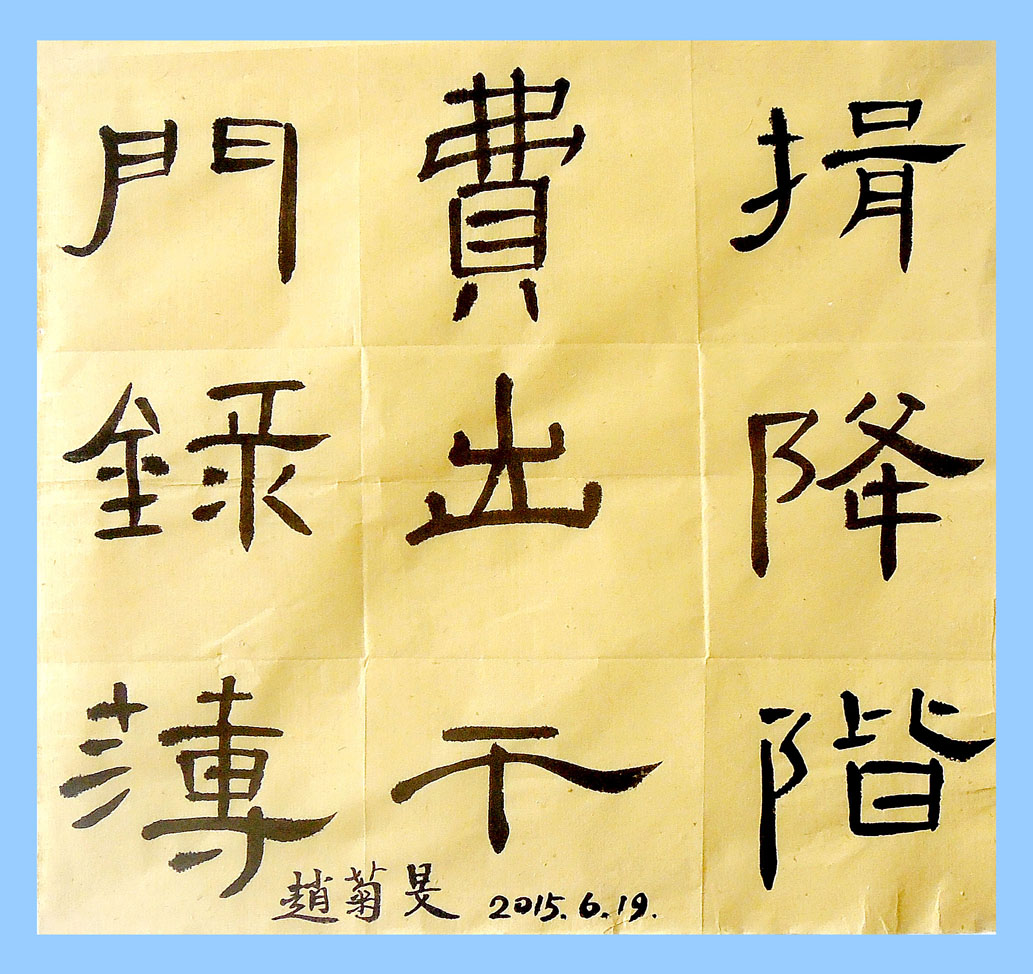 揖降階
費出干
門錄薄
趙菊旻 2015.6.19.